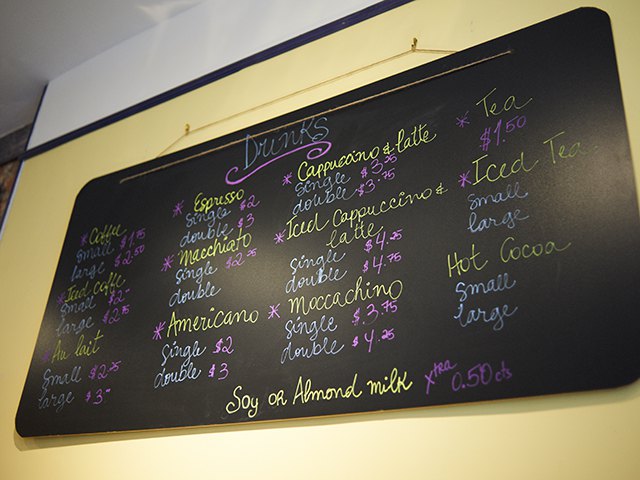 Drinks
* Coffee
small $1.75
large $2.50
* Iced coffe
small $2-
large $2.75
* Au lait
small $2.25
large $3-
* Espresso
single $2
double $3
* Macchiato
single $2.25
double
* Americano
single $2
double $3
* Cappuccino & latte
single $3.25
double $3.75
* Iced Cappuccino &
latte
single $4.25
double $4.75
* Moccachino
single $3.75
double $4.25
* Tea
$1.50
* Iced Tea
small
large
Hot Cocoa
small
large
Soy or Almond milk xtra 0.50 cts